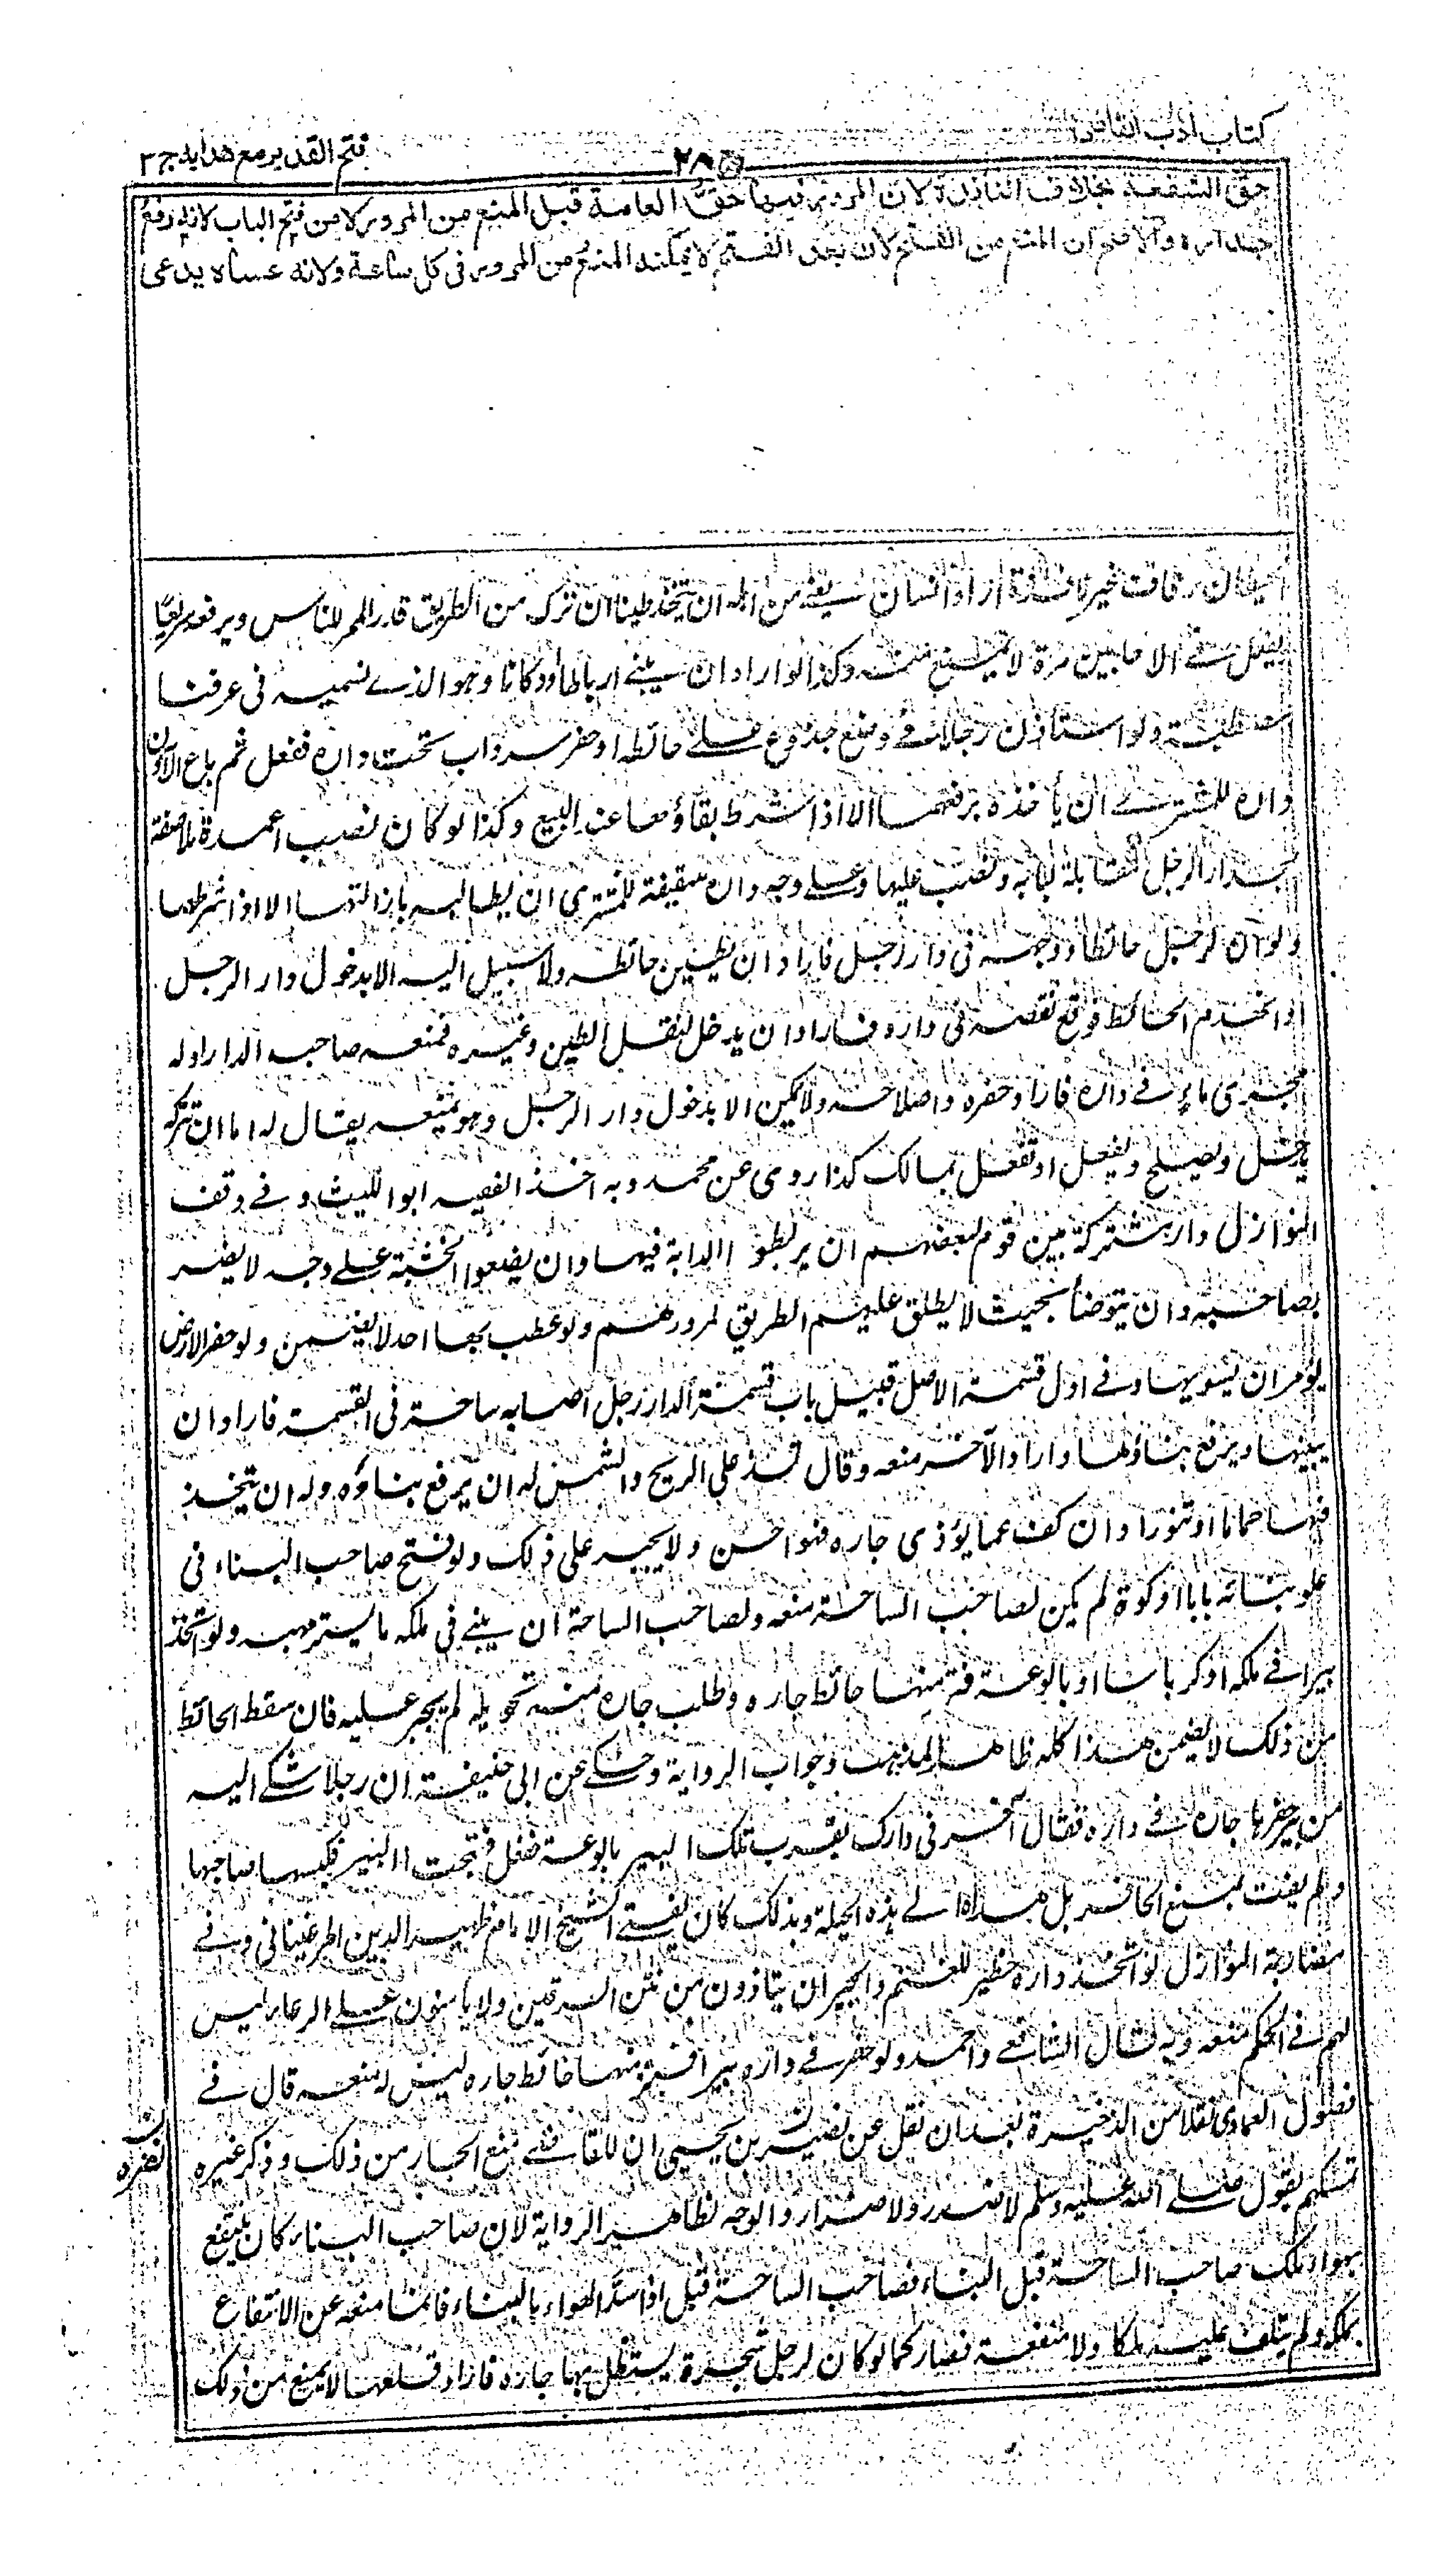 كتاب ادب القاضى
فتح القدير مع هدايه ج ٣
حق الشفعة بخلاف النافذة لان المرور فيها حق العامة قيل المنع من المرور لا من فتح الباب لانه رفع
جداره والاصح ان المنع من الفتح لان بعد الفتح لا يمكنه المنع من المرور فى كل ساعة ولانه عساه يدعى
زقاق غير نافذة اراد انسان من اهله ان يتخذ طينا ان ترك من الطريق قدر الممر للناس ويرفعه سريعا
يفعل فى الاحايين مرة لا يمنع منه وكذا لو اراد ان يبنى اريا او دكانا وهو الذى نسميه فى عرفنا
ولو استأذن رجلا فى وضع جذوع على حائطه او حفر سرداب تحت داره ففعل ثم باع الآذن
داره للمشترى ان يأخذه برفعهما الا اذا شرط بقاؤهما عند البيع وكذا لو كان نصب اعمدة ملاصقة
بجدار الرجل المقابلة لبابه ونصب عليها وعلى وجه داره سقيفة للمشترى ان يطالبه بازالتها الا اذا شرطها
ولو ان لرجل حائطا ووجهه فى دار رجل فاراد ان يطين حائطه ولا سبيل اليه الا بدخول دار الرجل
او انهدم الحائط فوقع نقضه فى داره فاراد ان يدخل لنقل الطين وغيره فمنعه صاحب الدار او له
مجرى ماء فى داره فاراد حفره واصلاحه ولا يمكن الا بدخول دار الرجل وهو يمنعه يقال له اما ان تتركه
يدخل ويصلح ويفعل او تفعل بمالك كذا روى عن محمد وبه اخذ الفقيه ابو الليث وفى وقف
النوازل دار مشتركة بين قوم لبعضهم ان يربطوا الدابة فيها وان يضعوا الخشبة على وجه لا يضر
بصاحبه وان يتوضأ بحيث لا يطلق عليهم الطريق لمرورهم ولو عطب بها احد لا يضمن ولو حفر الارض
يؤمر ان يسويها وفى اول قسمة الاصل قبيل باب قسمة الدار رجل اصابه ساحة فى القسمة فاراد ان
يبنيها ويرفع بناؤها واراد الآخر منعه وقال تسد على الريح والشمس له ان يرفع بناؤه وله ان يتخذ
فيها حماما او تنورا وان كف عما يؤذى جاره فهو احسن ولا يجبر على ذلك ولو فتح صاحب البناء فى
علو بنائه بابا او كوة لم يكن لصاحب الساحة منعه ولصاحب الساحة ان يبنى فى ملكه ما يستر جهته ولو اتخذ
بيرا فى ملكه او كرباسا او بالوعة فنز منها حائط جاره وطلب جاره منه تحويله لم يجبر عليه فان سقط الحائط
من ذلك لا يضمن هذا كله ظاهر المذهب وجواب الرواية وحكى عن ابى حنيفة ان رجلا شكى اليه
من بير حفرها جاره فى داره فقال احفر فى دارك بقرب تلك البير بالوعة ففعل فنجت البير فكبسها صاحبها
ولم يفت بمنع الحافر بل هداه الى هذه الحيلة وبذلك كان يفتى الشيخ الامام ظهير الدين المرغينانى وفى
مضاربة النوازل لو اتخذ داره حظيرة للغنم والجيران يتأذون من نتن السرقين ولا يأمنون على الرعاء ليس
لهم فى الحكم منعه وبه قال الشافعى واحمد ولو حفر فى داره بيرا فنز منها حائط جاره ليس له منعه قال فى
فصول العمادى نقلا من الذخيرة بعد ان نقل عن نصير بن يحيى ان للقاضى منع الجار من ذلك وذكر غيره
تمسكهم بقول صلى الله عليه وسلم لا ضرر ولا ضرار والوجه لظاهر الرواية لان صاحب البناء كان ينتفع
بهواء ملك صاحب الساحة قبل البناء فصاحب الساحة قبل اذا سد الهواء بالبناء فانما منعه عن الانتفاع
بملكه ولم يتلف عليه ملكا ولا منفعة فصار كما لو كان لرجل شجرة يستظل بها جاره فاراد قلعها لا يمنع من ذلك